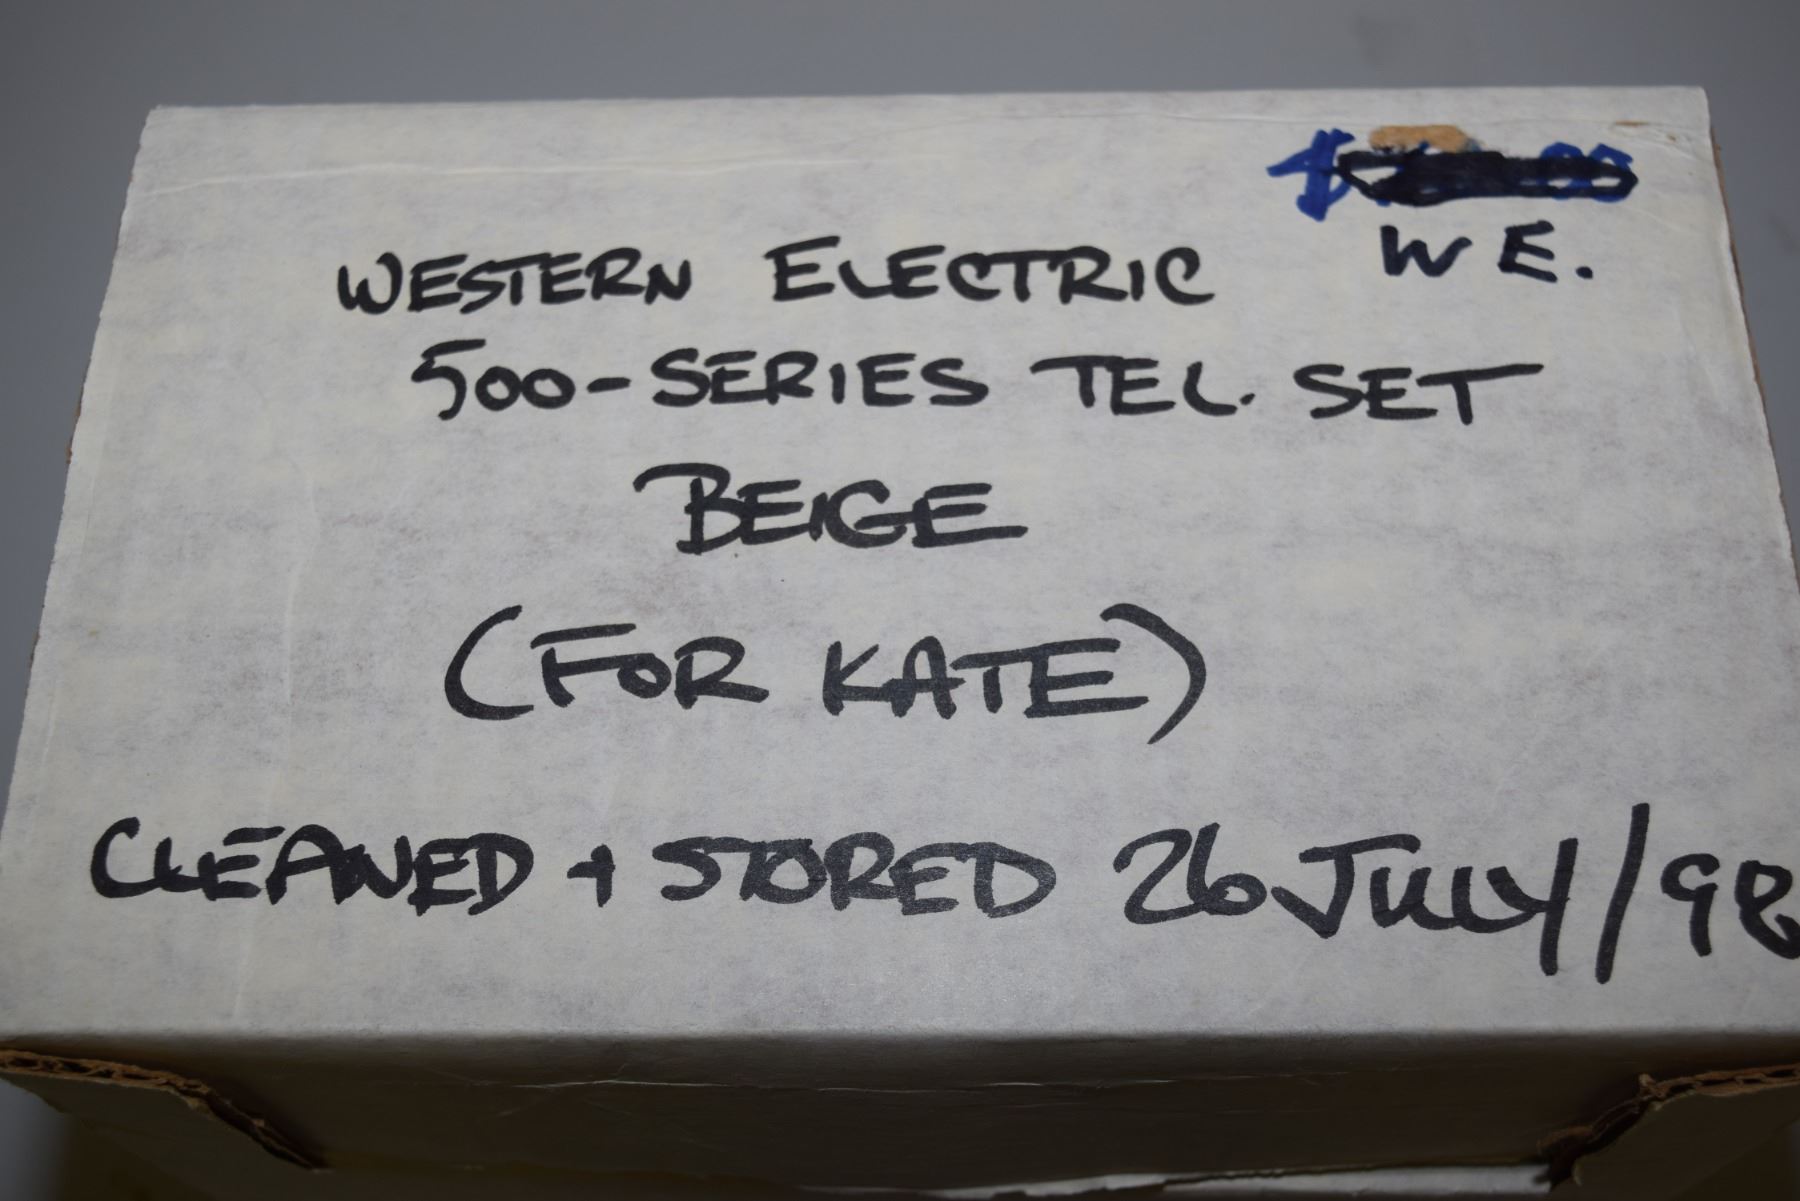 W E.
WESTERN ELECTRIC
500-SERIES TEL. SET
BEIGE
(FOR KATE)
CLEANED + STORED 26 JULY/98